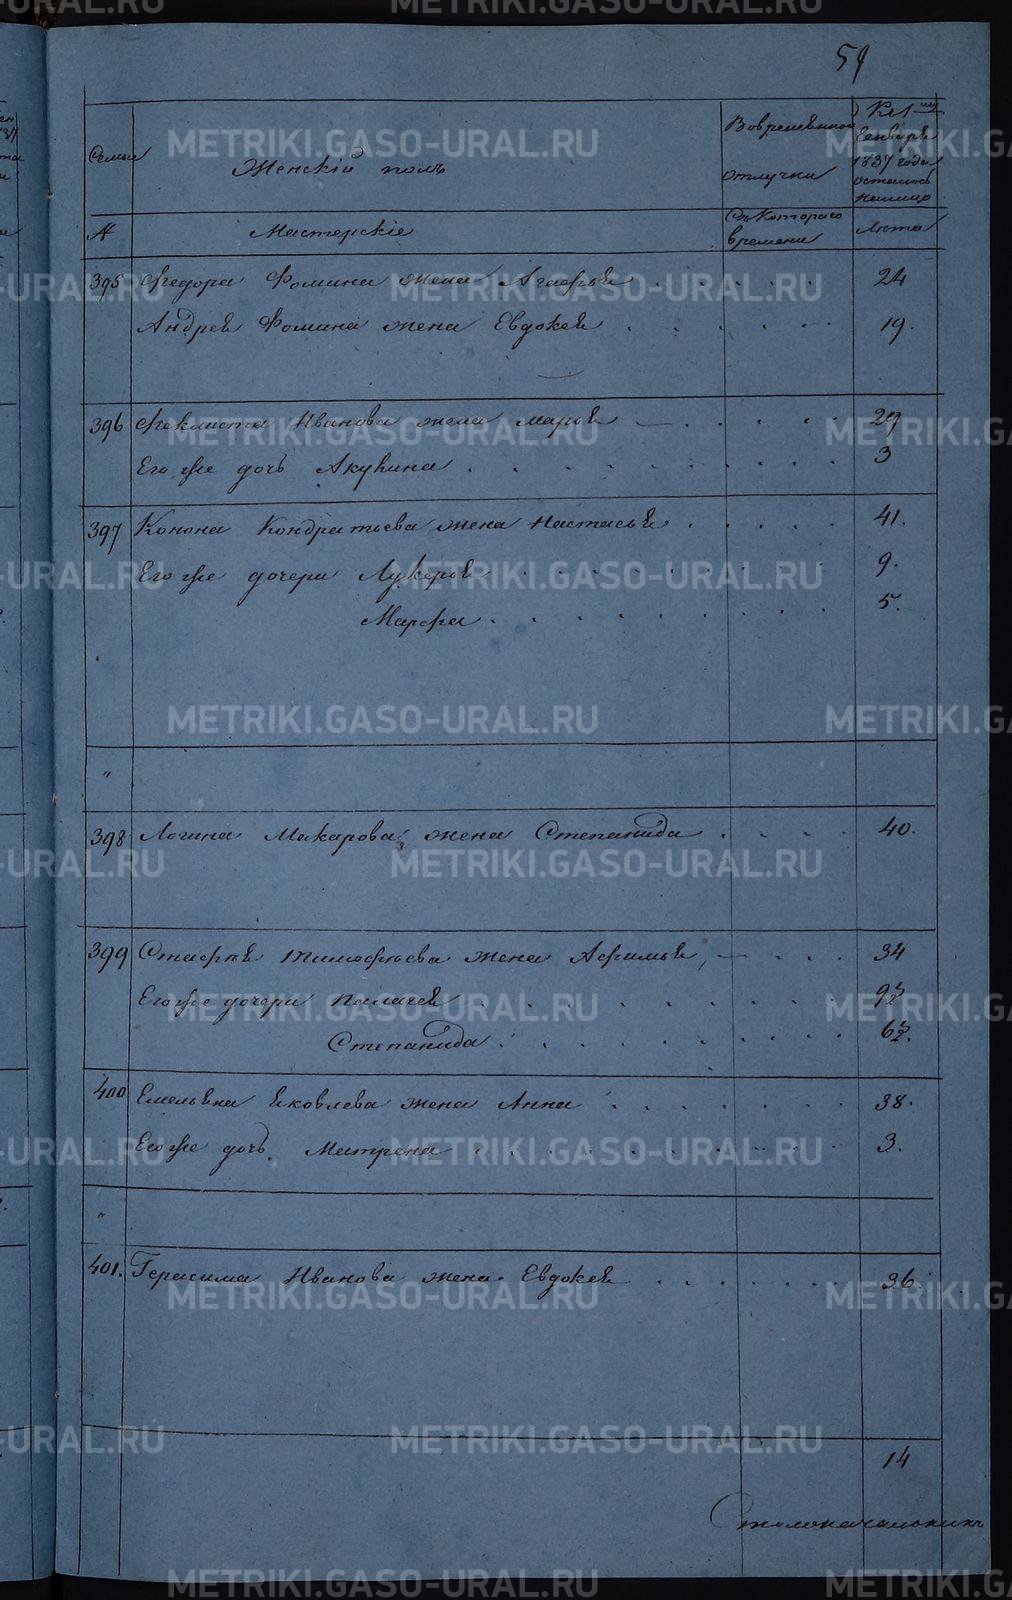 59
Семьи
Женскій полъ
Вовременной отлучки
К 1му Генваря 1837 года осталось налицо
№
Мастерскіе
Съ котораго времени
Лѣта
395 Федора Фомина жена Агафья 24
Андрея Фомина жена Евдокея 19.
396 Феклиста Иванова жена Марья 29
Его же дочь Акулина 3
397 Конона Кондратьева жена Настасья 41.
Его же дочери Лукерья 9.
Марфа 5.
"
398 Логина Макарова жена Степанида 40.
399 Стафья Тимофѣева жена Афимья 34
Его же дочери Палагея 9½
Степанида 6½.
400 Емельяна Яковлева жена Анна 38.
Его же дочь Матрена 3.
"
401. Герасима Иванова жена Евдокея 36
14
Столоначальникъ
METRIKI.GASO-URAL.RU